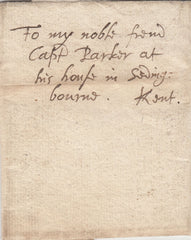 To my noble frend
Capt Parker at
his house in Seding:
bourne. Kent.